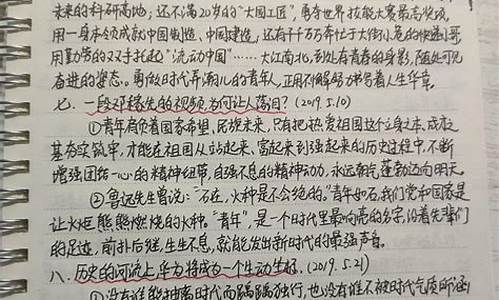 未来的科研高地；还不满20岁的"大国工匠"，勇夺世界技能大赛最高奖项，
用一身本领成就中国制造、中国建造；还有千千万万奔忙于大街小巷的快递小哥
用勤劳的双手托起"流动中国"……大江南北，到处有青春的身影，随处可见
奋进的姿态。勇做时代弄潮儿的青年人，正用不懈努力书写着人生华章。
七、一段邓稼先的视频，为何让人落泪？(2019.5.10)
①青年肩负着国家希望、民族未来，只有把热爱祖国这个立身之本、成才之
基夯实筑牢，才能在祖国从站起来、富起来到强起来的历史过程中，不断
增强团结一心的精神纽带，自强不息的精神动力，永远朝气蓬勃迈向明天。
②鲁迅先生曾说："石在，火种是不会绝的。"青年如石，我们党和国家是
让火炬熊熊燃烧的火种。"青年"，是一个时代里最响亮的名字，沿着先辈们
的足迹，前扑后继、生生不息，就能发出新时代的最强声音。
八、历史的河流上，华为将成为一个生动坐标。(2019.5.21)
①没有谁能抽离时代而踽踽独行，也没有谁不被时代气质所涵